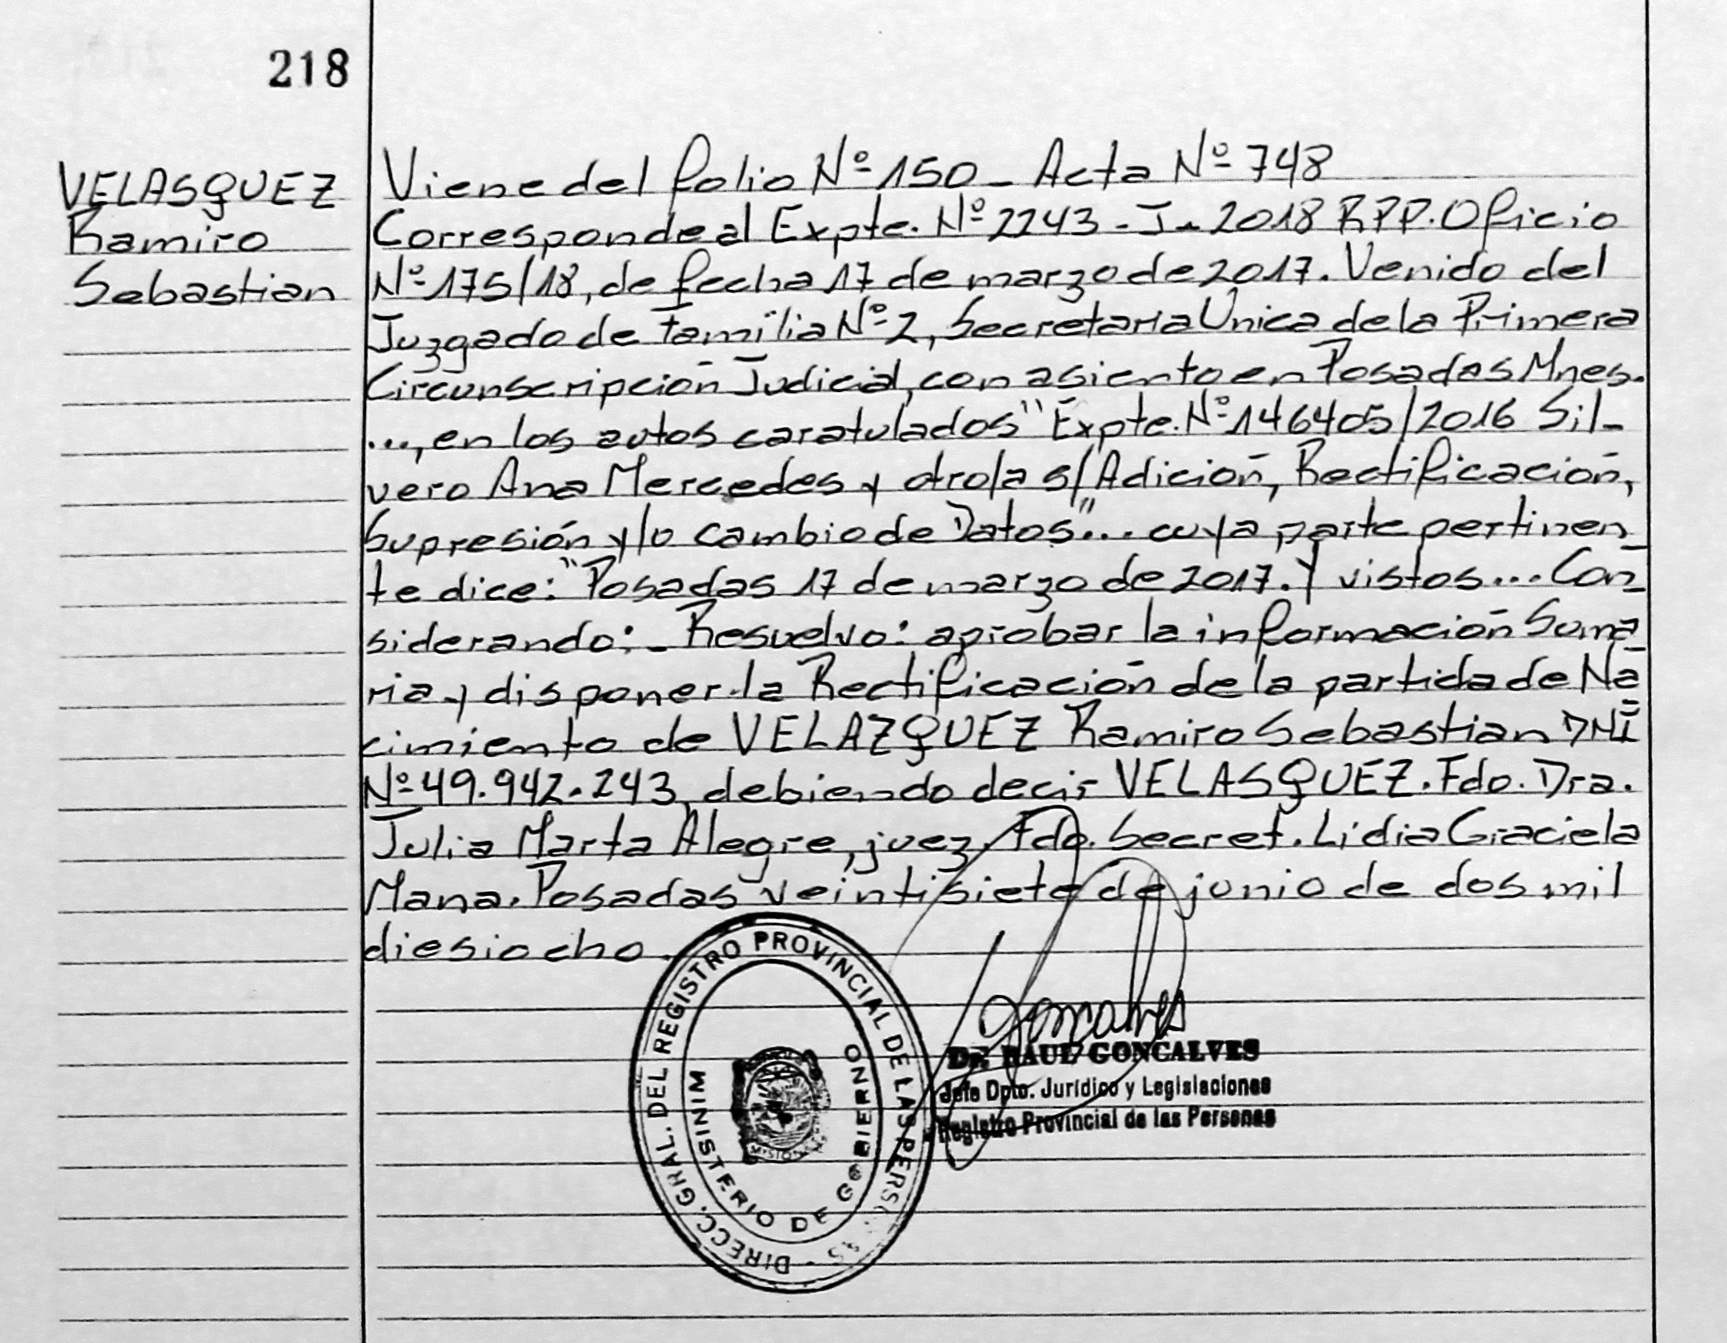 218
VELASQUEZ
Ramiro
Sebastian
Viene del folio Nº 150 - Acta Nº 748
Corresponde al Expte. Nº 2243 - J - 2018 RPP. Oficio
Nº 175/18, de fecha 17 de marzo de 2017. Venido del
Juzgado de Familia Nº 2, Secretaria Unica de la Primera
Circunscripción Judicial, con asiento en Posadas Mnes.
..., en los autos caratulados "Expte. Nº 146405/2016 Sil-
vero Ana Mercedes y otro/a s/ Adición, Rectificación,
Supresión y/o cambio de Datos"... cuya parte pertinen
te dice: "Posadas 17 de marzo de 2017. Y vistos... Con
siderando: - Resuelvo: aprobar la información Suma
ria y disponer la Rectificación de la partida de Na
cimiento de VELAZQUEZ Ramiro Sebastian DNI
Nº 49.942.243, debiendo decir VELASQUEZ. Fdo. Dra.
Julia Marta Alegre, juez. Fdo. Secret. Lidia Graciela
Mana. Posadas veintisiete de junio de dos mil
diesiocho.
DIRECC. GRAL. DEL REGISTRO PROVINCIAL DE LAS PERSONAS
MINISTERIO DE GOBIERNO
MISIONES
Goncalves
Dr. RAUL GONCALVES
Jefe Dpto. Jurídico y Legislaciones
Registro Provincial de las Personas